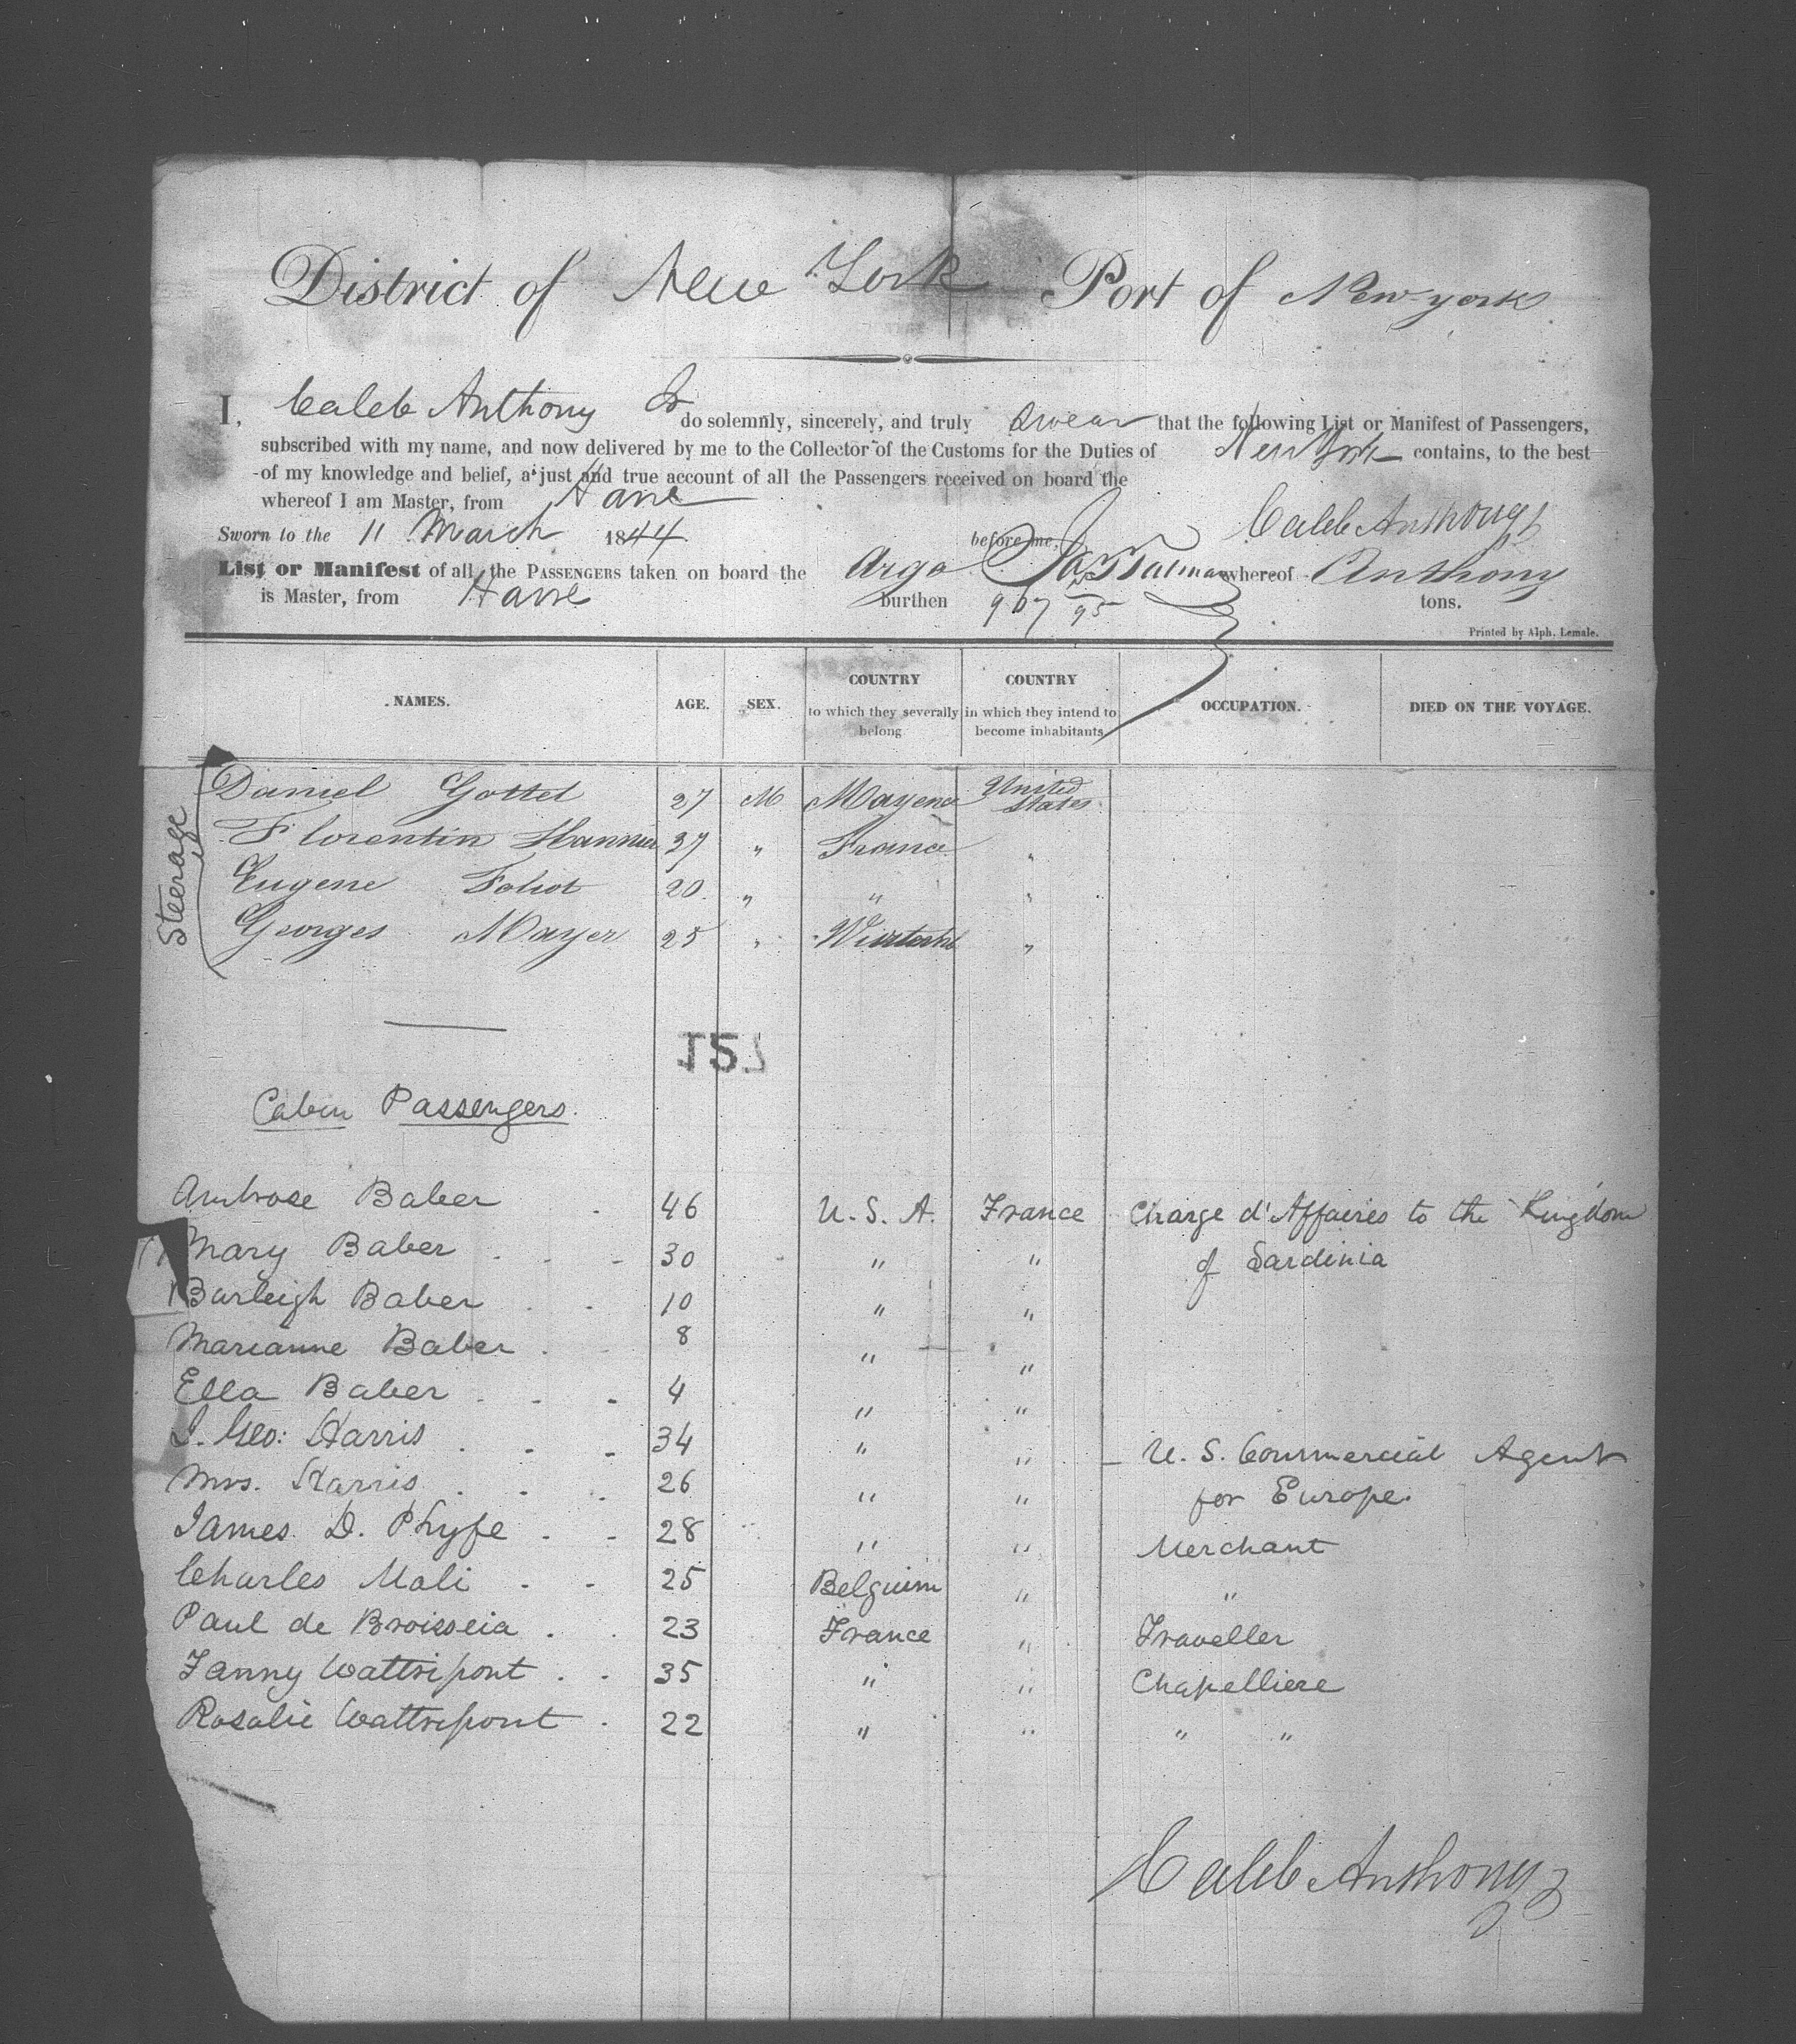 District of New York Port of New-york
I, Caleb Anthony Jr do solemnly, sincerely, and truly swear that the following List or Manifest of Passengers,
subscribed with my name, and now delivered by me to the Collector of the Customs for the Duties of New York contains, to the best
of my knowledge and belief, a just and true account of all the Passengers received on board the
whereof I am Master, from Havre
Sworn to the 11 March 1844 before me, Caleb Anthony Jr
List or Manifest of all the PASSENGERS taken on board the Argo whereof Anthony
is Master, from Havre burthen 967 95 tons.
Printed by Alph. Lemale.
NAMES. AGE. SEX. COUNTRY to which they severally belong COUNTRY in which they intend to become inhabitants OCCUPATION. DIED ON THE VOYAGE.
Steerage
Daniel Gottel 27 M Mayence United States
Florentin 37 " France "
Eugene Foliot 20 " " "
Georges Mayer 25 " "
157
Cabin Passengers.
Ambrose Baber 46 U. S. A. France Charge d'Affaires to the Kingdom
Mary Baber 30 " " of Sardinia
Burleigh Baber 10 " "
Marianne Baber 8 " "
Ella Baber 4 " "
J. Geo: Harris 34 " " U. S. Commercial Agent
Mrs. Harris 26 " " for Europe.
James D. Phyfe 28 " " Merchant
Charles Mali 25 Belguim " "
Paul de Broisseia 23 France " Traveller
Fanny Wattripont 35 " " Chapelliere
Rosalie Wattripont 22 " " " "
Caleb Anthony Jr